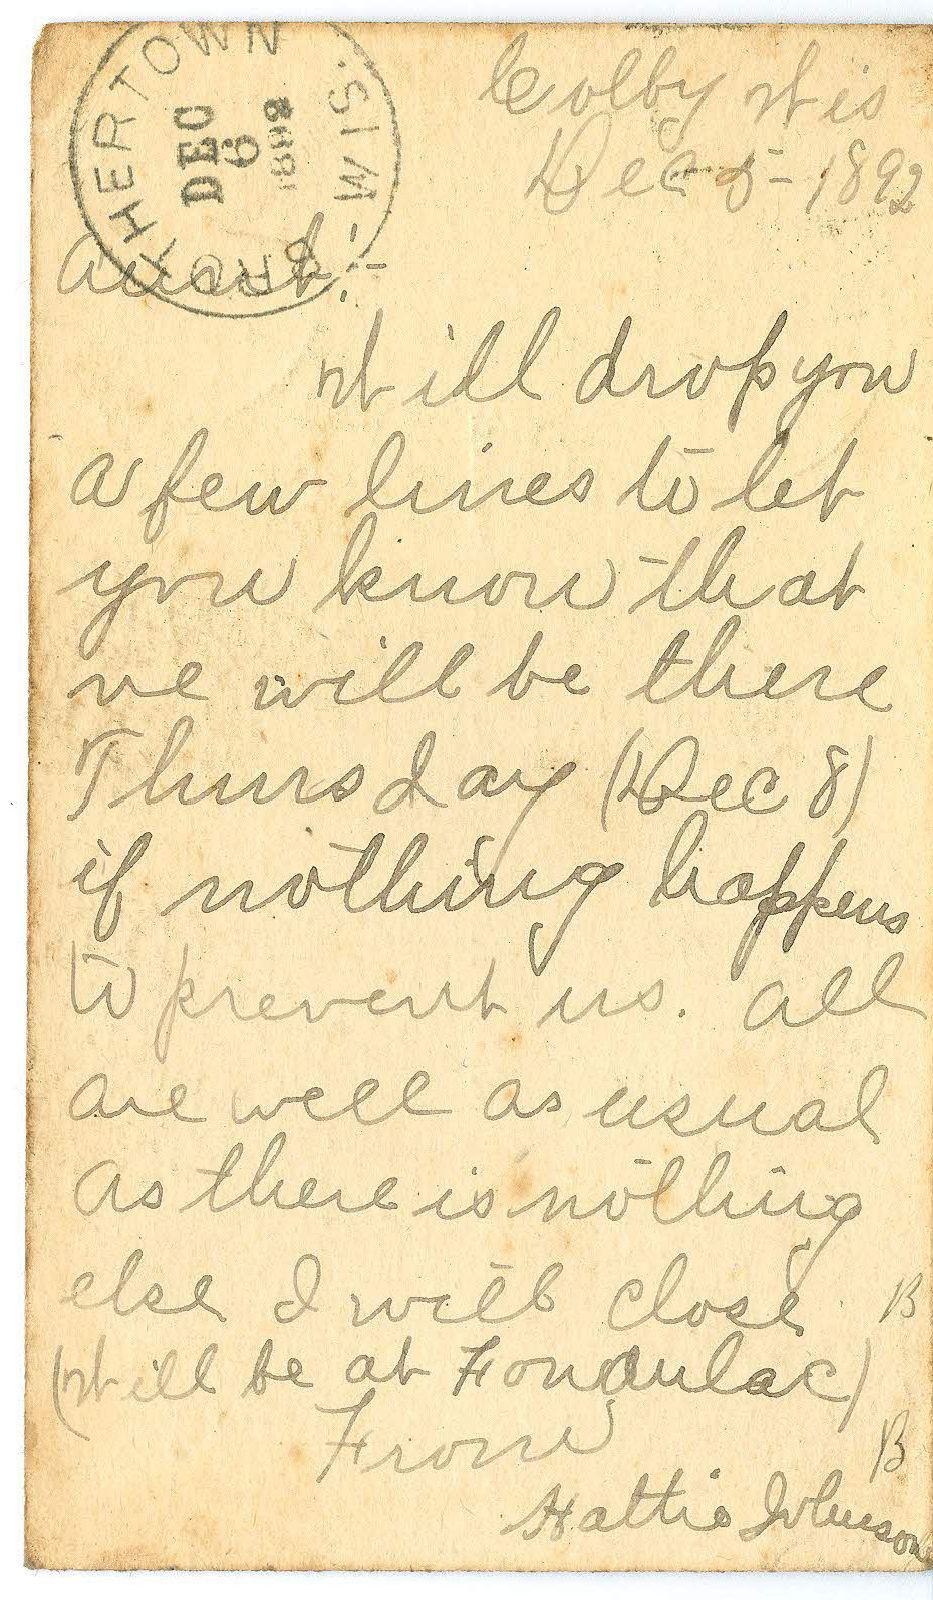 BROTHERTOWN WIS.
DEC
6
Colby Wis
Dec 5- 1892
Will drop you
a few lines to let
you know that
we will be there
Thursday (Dec 8)
if nothing happens
to prevent us. all
are well as usual
as there is nothing
else I will close B
(Will be at Fondulac)
From B
Hattie Johnson